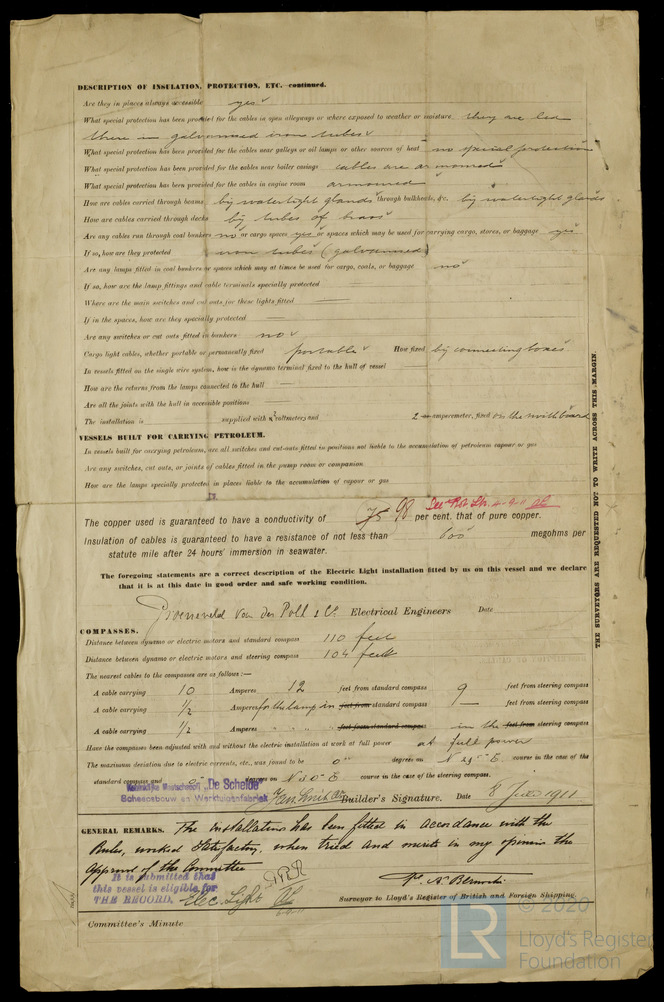 DESCRIPTION OF INSULATION, PROTECTION, ETC.—continued.
Are they in places always accessible yes
What special protection has been provided for the cables in open alleyways or where exposed to weather or moisture they are led
there in galvanised iron tubes
What special protection has been provided for the cables near galleys or oil lamps or other sources of heat no special protection
What special protection has been provided for the cables near boiler casings cables are armoured
What special protection has been provided for the cables in engine room armoured
How are cables carried through beams by watertight glands through bulkheads, &c. by watertight glands
How are cables carried through decks by tubes of brass
Are any cables run through coal bunkers no or cargo spaces yes or spaces which may be used for carrying cargo, stores, or baggage yes
If so, how are they protected iron tubes (galvanised)
Are any lamps fitted in coal bunkers or spaces which may at times be used for cargo, coals, or baggage no
If so, how are the lamp fittings and cable terminals specially protected
Where are the main switches and cut outs for these lights fitted
If in the spaces, how are they specially protected
Are any switches or cut outs fitted in bunkers no
Cargo light cables, whether portable or permanently fixed portable How fixed by connecting boxes
In vessels fitted on the single wire system, how is the dynamo terminal fixed to the hull of vessel
How are the returns from the lamps connected to the hull
Are all the joints with the hull in accessible positions
The installation is supplied with 2 voltmeters and 2 amperemeter, fixed on the switchboard
VESSELS BUILT FOR CARRYING PETROLEUM.
In vessels built for carrying petroleum, are all switches and cut-outs fitted in positions not liable to the accumulation of petroleum vapour or gas
Are any switches, cut outs, or joints of cables fitted in the pump room or companion
How are the lamps specially protected in places liable to the accumulation of vapour or gas
The copper used is guaranteed to have a conductivity of 98 per cent. that of pure copper.
Insulation of cables is guaranteed to have a resistance of not less than 600 megohms per
statute mile after 24 hours' immersion in seawater.
The foregoing statements are a correct description of the Electric Light installation fitted by us on this vessel and we declare
that it is at this date in good order and safe working condition.
Groeneveld Van der Poll & Co. Electrical Engineers Date
COMPASSES.
Distance between dynamo or electric motors and standard compass 110 feet
Distance between dynamo or electric motors and steering compass 104 feet
The nearest cables to the compasses are as follows:—
A cable carrying 10 Amperes 12 feet from standard compass 9 feet from steering compass
A cable carrying 1/2 Amperes for the lamp in feet from standard compass — feet from steering compass
A cable carrying 1/2 Amperes " " " feet from standard compass in the feet from steering compass
Have the compasses been adjusted with and without the electric installation at work at full power at full power
The maximum deviation due to electric currents, etc., was found to be 0° degrees on N 29° E course in the case of the
standard compass and 0° degrees on N 30° E course in the case of the steering compass.
Koninklijke Maatschappij "De Schelde"
Scheepsbouw en Werktuigenfabriek
Builder's Signature. Date 8 Juli 1911
GENERAL REMARKS. The installation has been fitted in accordance with the
Rules, worked satisfactory, when tried and merits in my opinion the
approval of the Committee
It is submitted that
this vessel is eligible for
THE RECORD. Elec. Light
Surveyor to Lloyd's Register of British and Foreign Shipping.
Committee's Minute
THE SURVEYORS ARE REQUESTED NOT TO WRITE ACROSS THIS MARGIN.
© 2020
LR
Lloyd's Register
Foundation